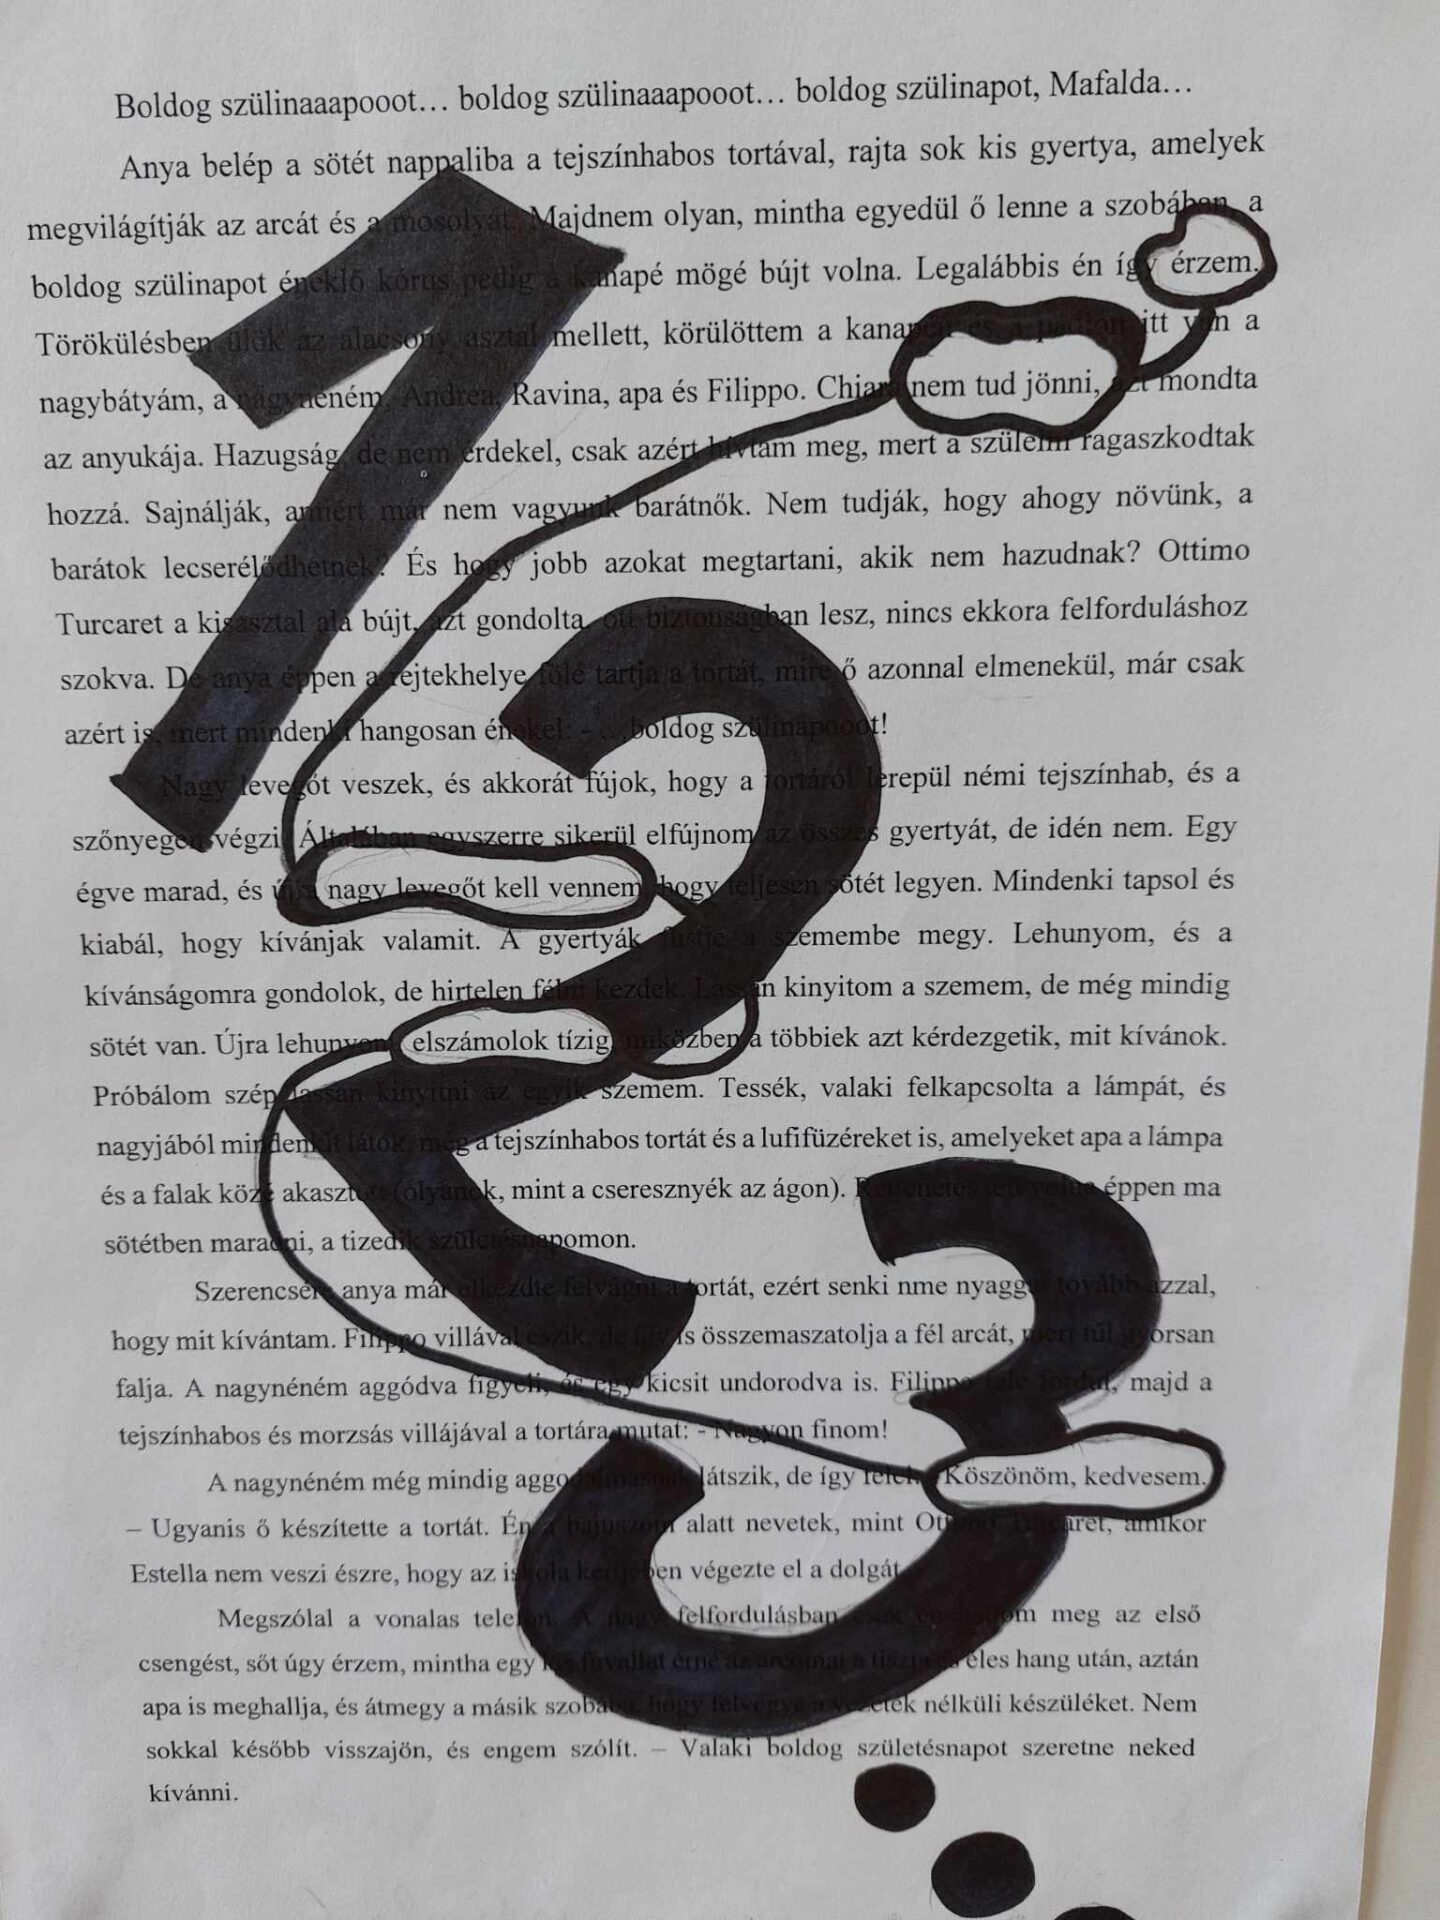 Boldog szülinaaapooot… boldog szülinaaapooot… boldog szülinapot, Mafalda…
Anya belép a sötét nappaliba a tejszínhabos tortával, rajta sok kis gyertya, amelyek
megvilágítják az arcát és a mosolyát. Majdnem olyan, mintha egyedül ő lenne a szobában, a
boldog szülinapot éneklő kórus pedig a kanapé mögé bújt volna. Legalábbis én így érzem.
Törökülésben ülök az alacsony asztal mellett, körülöttem a kanapén és a padlón itt van a
nagybátyám, a nagynéném, Andrea, Ravina, apa és Filippo. Chiara nem tud jönni, azt mondta
az anyukája. Hazugság, de nem érdekel, csak azért hívtam meg, mert a szüleim ragaszkodtak
hozzá. Sajnálják, amiért már nem vagyunk barátnők. Nem tudják, hogy ahogy növünk, a
barátok lecserélődhetnek? És hogy jobb azokat megtartani, akik nem hazudnak? Ottimo
Turcaret a kisasztal alá bújt, azt gondolta, ott biztonságban lesz, nincs ekkora felforduláshoz
szokva. De anya éppen a rejtekhelye fölé tartja a tortát, mire ő azonnal elmenekül, már csak
azért is, mert mindenki hangosan énekel: - …boldog szülinapooot!
Nagy levegőt veszek, és akkorát fújok, hogy a tortáról lerepül némi tejszínhab, és a
szőnyegen végzi. Általában egyszerre sikerül elfújnom az összes gyertyát, de idén nem. Egy
égve marad, és újra nagy levegőt kell vennem, hogy teljesen sötét legyen. Mindenki tapsol és
kiabál, hogy kívánjak valamit. A gyertyák füstje a szemembe megy. Lehunyom, és a
kívánságomra gondolok, de hirtelen félni kezdek. Lassan kinyitom a szemem, de még mindig
sötét van. Újra lehunyom, elszámolok tízig, miközben a többiek azt kérdezgetik, mit kívánok.
Próbálom szép lassan kinyitni az egyik szemem. Tessék, valaki felkapcsolta a lámpát, és
nagyjából mindenkit látok, még a tejszínhabos tortát és a lufifüzéreket is, amelyeket apa a lámpa
és a falak közé akasztott (olyanok, mint a cseresznyék az ágon). Rettenetes lett volna éppen ma
sötétben maradni, a tizedik születésnapomon.
Szerencsére anya már elkezdte felvágni a tortát, ezért senki nme nyaggat tovább azzal,
hogy mit kívántam. Filippo villával eszik, de így is összemaszatolja a fél arcát, mert túl gyorsan
falja. A nagynéném aggódva figyeli, és egy kicsit undorodva is. Filippo felé fordul, majd a
tejszínhabos és morzsás villájával a tortára mutat: - Nagyon finom!
A nagynéném még mindig aggodalmasnak látszik, de így felel: Köszönöm, kedvesem.
– Ugyanis ő készítette a tortát. Én a bajuszom alatt nevetek, mint Ottimo Turcaret, amikor
Estella nem veszi észre, hogy az iskola kertjében végezte el a dolgát.
Megszólal a vonalas telefon. A nagy felfordulásban csak én hallom meg az első
csengést, sőt úgy érzem, mintha egy kis fuvallat érné az arcomat a tiszta és éles hang után, aztán
apa is meghallja, és átmegy a másik szobába, hogy felvegye a vezeték nélküli készüléket. Nem
sokkal később visszajön, és engem szólít. – Valaki boldog születésnapot szeretne neked
kívánni.